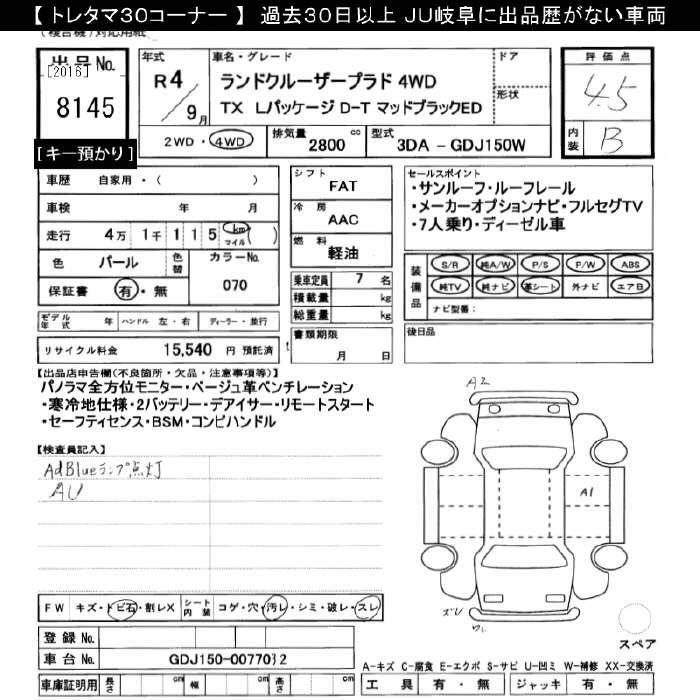 【 トレタマ30コーナー 】 過去30日以上 JU岐阜に出品歴がない車両
(複合機) 対応用紙
出品No.
[2016]
8145
[キー預かり]
年式
R4
9月
車名・グレード
ランドクルーザープラド 4WD
TX Lパッケージ D-T マッドブラックED
ドア
形状
評価点
4.5
内装
B
2WD・4WD
排気量
2800 cc
型式
3DA - GDJ150W
車歴 自家用・( )
車検 年 月
走行 4万 1千 1 1 5 km マイル ( )
色 パール 色替 カラーNo.
保証書 有・無 070
モデル年式 年 ハンドル 左・右 ディーラー・並行
リサイクル料金 15,540 円 預託済
シフト
FAT
冷房
AAC
燃料
軽油
乗車定員 7 名
積載量 kg
総重量 kg
書類期限
月 日
セールスポイント
・サンルーフ・ルーフレール
・メーカーオプションナビ・フルセグTV
・7人乗り・ディーゼル車
装備品
S/R 純A/W P/S P/W ABS
純TV 純ナビ 革シート 外ナビ エアB
ナビ型番:
後日品
【出品店申告欄(不良箇所・欠品・注意事項等)】
パノラマ全方位モニター・ベージュ革ベンチレーション
・寒冷地仕様・2バッテリー・デアイサー・リモートスタート
・セーフティセンス・BSM・コンビハンドル
【検査員記入】
AdBlueランプ点灯
AU
A2
A1
ズレ
ワレ
スペア
FW キズ・トビ石・割レX シート内装 コゲ・穴・汚レ・シミ・破レ・スレ
登録 No.
車台 No. GDJ150-0077032
車庫証明用 長さ cm 幅 cm 高さ cm
A-キズ C-腐食 E-エクボ S-サビ U-凹ミ W-補修 XX-交換済
工具 有・無 ジャッキ 有・無